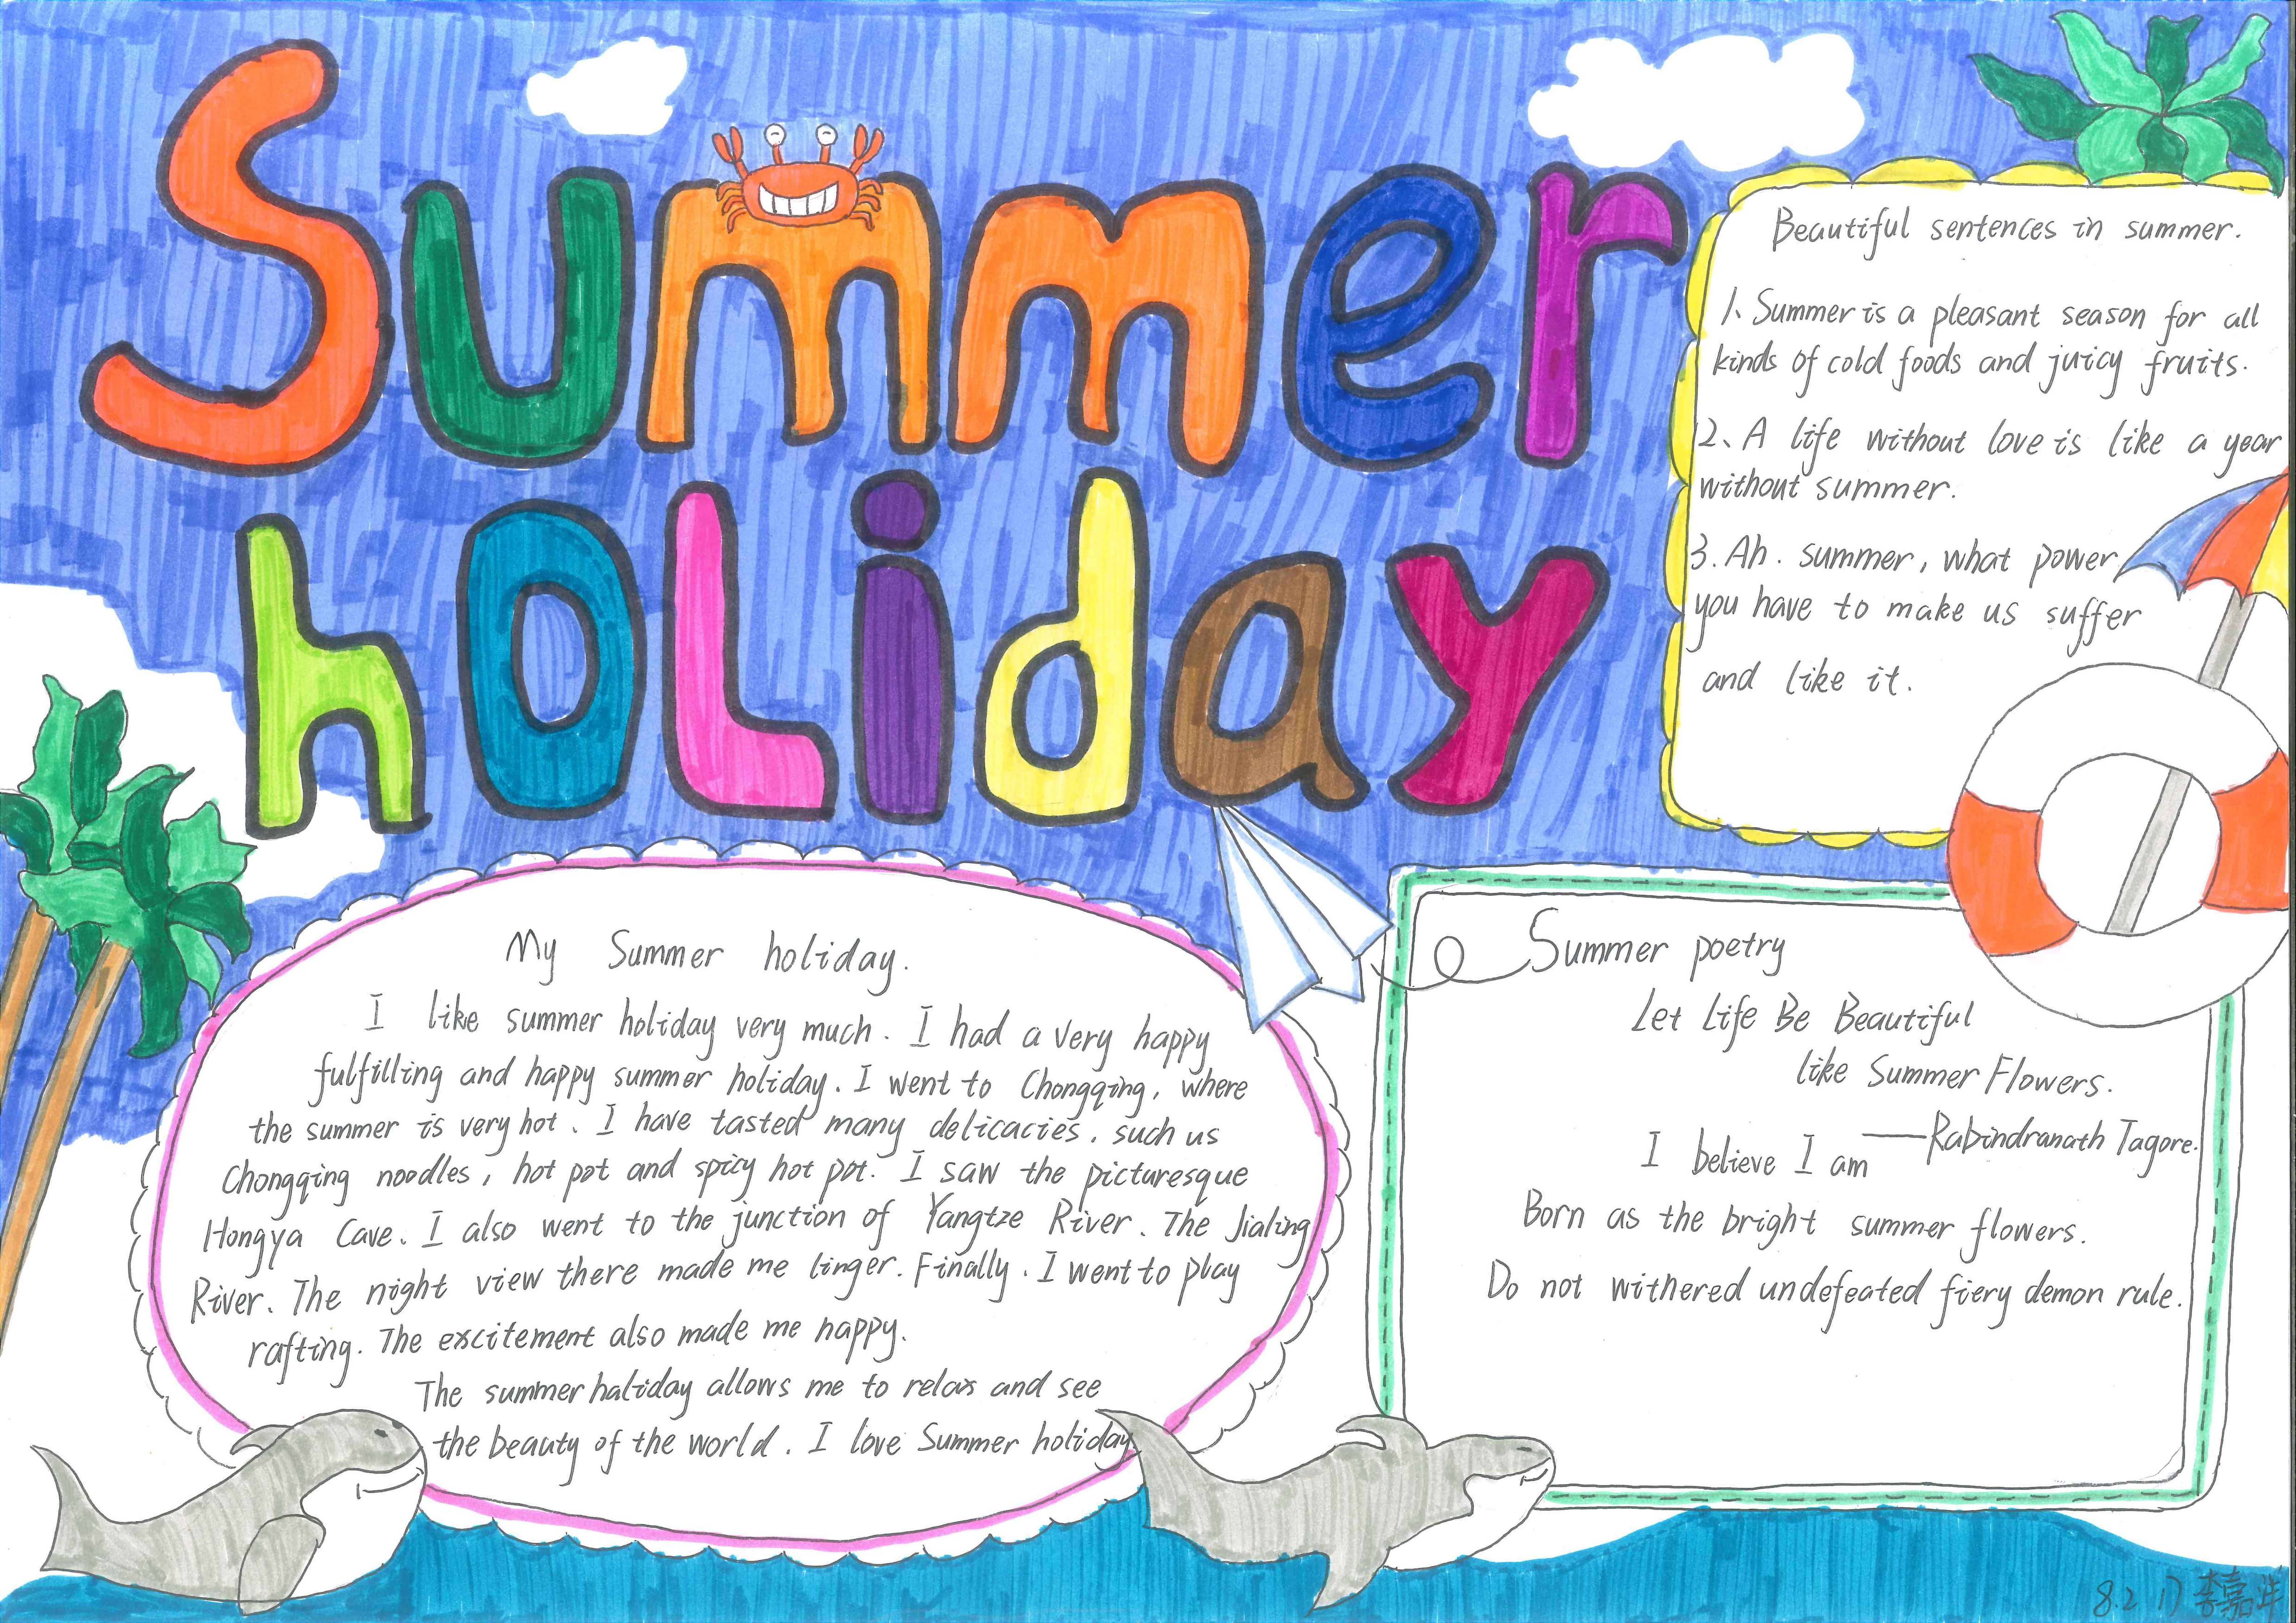 Summer
hoLiday
Beautiful sentences in summer.
1、Summer is a pleasant season for all
kinds of cold foods and juicy fruits.
2、A life without love is like a year
without summer.
3. Ah. summer, what power
you have to make us suffer
and like it.
My Summer holiday.
I like summer holiday very much. I had a very happy
fulfilling and happy summer holiday. I went to Chongqing, where
the summer is very hot. I have tasted many delicacies, such us
Chongqing noodles, hot pot and spicy hot pot. I saw the picturesque
Hongya Cave. I also went to the junction of Yangtze River. The Jialing
River. The night view there made me linger. Finally. I went to play
rafting. The excitement also made me happy.
The summer haliday allows me to relax and see
the beauty of the world. I love Summer holiday.
Summer poetry
Let Life Be Beautiful
like Summer Flowers.
——Rabindranath Tagore.
I believe I am
Born as the bright summer flowers.
Do not withered undefeated fiery demon rule.
8.2 17 李嘉